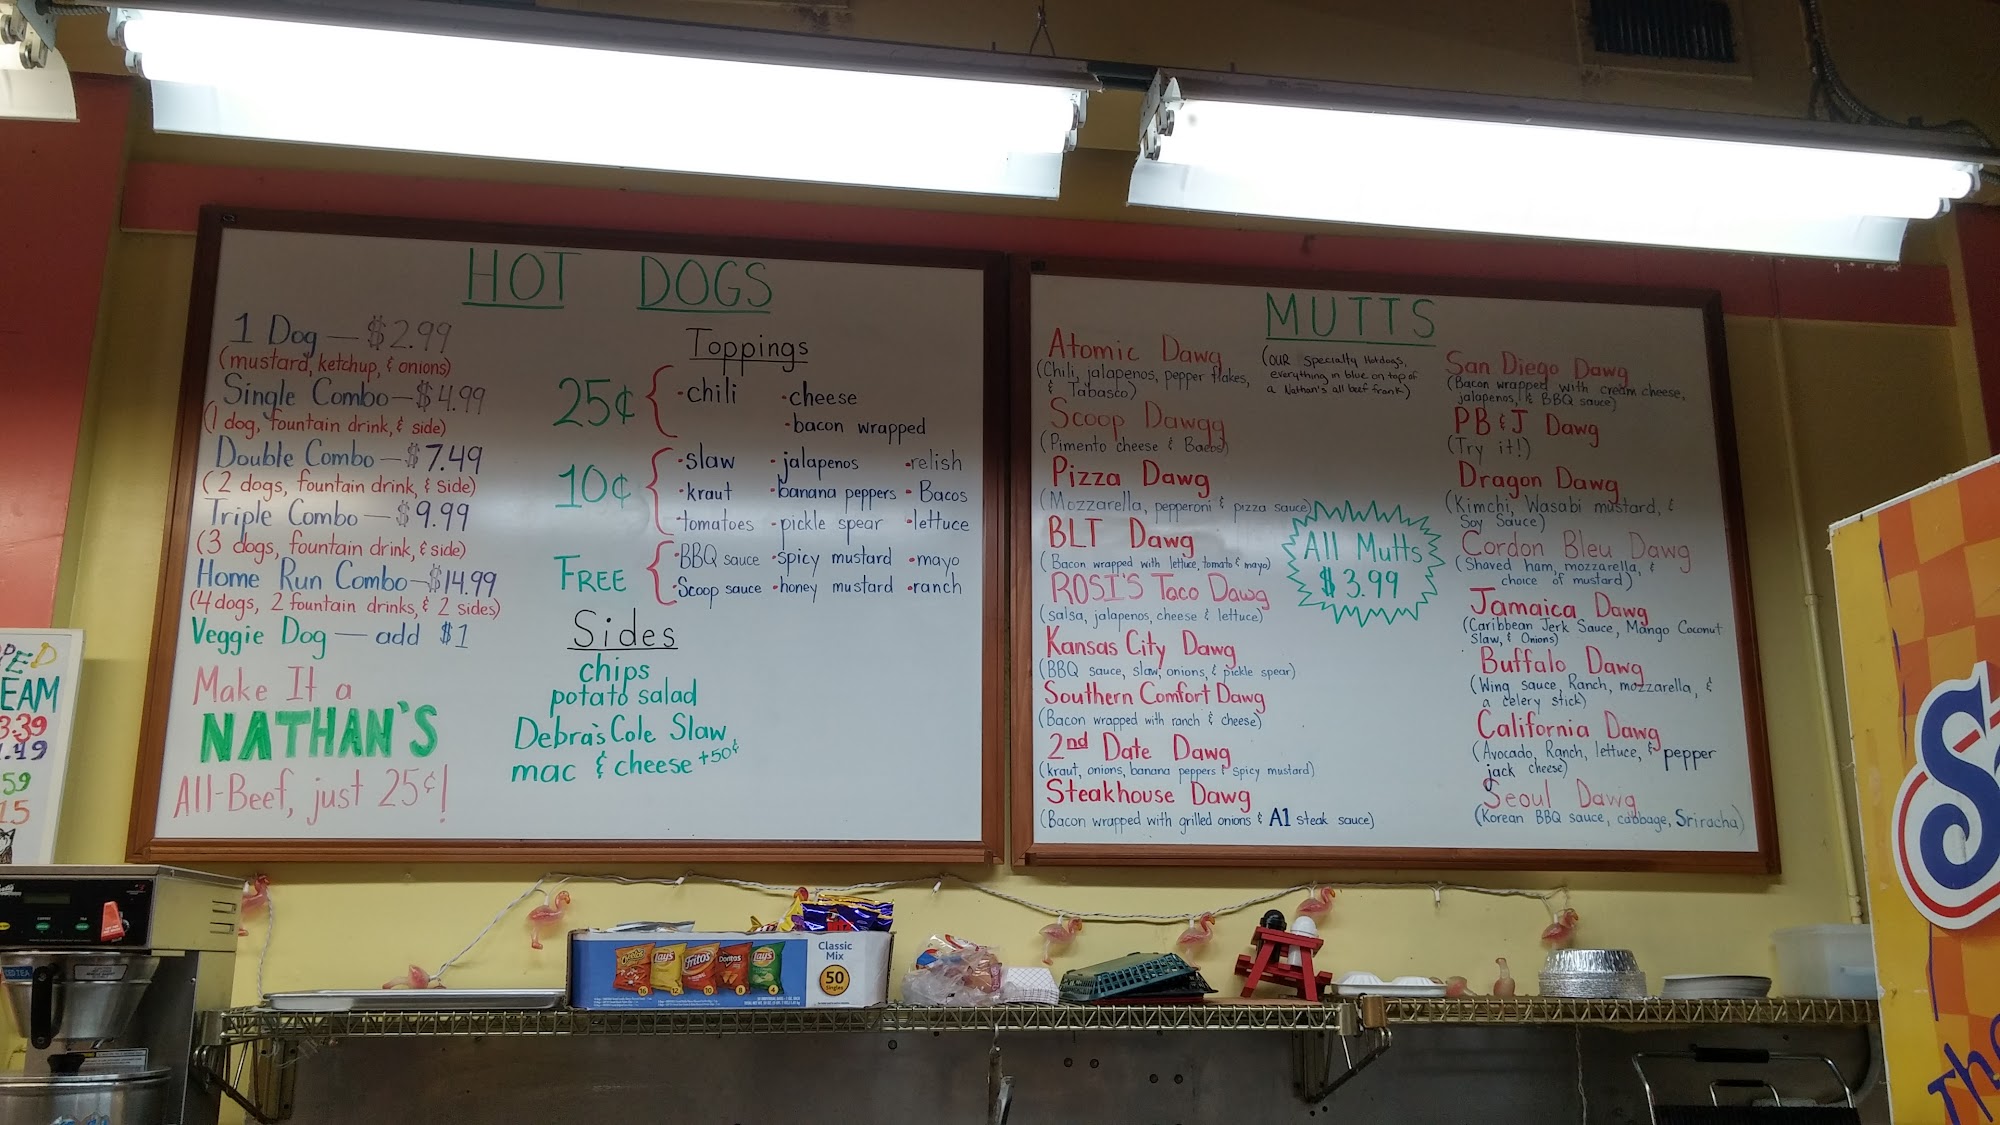 HOT DOGS
1 Dog — $2.99
(mustard, ketchup, & onions)
Single Combo — $4.99
(1 dog, fountain drink, & side)
Double Combo — $7.49
(2 dogs, fountain drink, & side)
Triple Combo — $9.99
(3 dogs, fountain drink, & side)
Home Run Combo — $14.99
(4 dogs, 2 fountain drinks, & 2 sides)
Veggie Dog — add $1
Make It a
NATHAN'S
All-Beef, just 25¢!
Toppings
25¢
•chili •cheese
•bacon wrapped
10¢
•slaw •jalapenos •relish
•kraut •banana peppers •Bacos
•tomatoes •pickle spear •lettuce
FREE
•BBQ sauce •spicy mustard •mayo
•Scoop sauce •honey mustard •ranch
Sides
chips
potato salad
Debra's Cole Slaw
mac & cheese +50¢
MUTTS
(OUR Specialty Hotdogs,
everything in blue on top of
a Nathan's all beef frank)
Atomic Dawg
(Chili, jalapenos, pepper flakes,
& Tabasco)
Scoop Dawgg
(Pimento cheese & Bacos)
Pizza Dawg
(Mozzarella, pepperoni & pizza sauce)
BLT Dawg
(Bacon wrapped with lettuce, tomato & mayo)
ROSI'S Taco Dawg
(salsa, jalapenos, cheese & lettuce)
Kansas City Dawg
(BBQ sauce, slaw, onions, & pickle spear)
Southern Comfort Dawg
(Bacon wrapped with ranch & cheese)
2nd Date Dawg
(kraut, onions, banana peppers & spicy mustard)
Steakhouse Dawg
(Bacon wrapped with grilled onions & A1 steak sauce)
All Mutts
$3.99
San Diego Dawg
(Bacon wrapped with cream cheese,
jalapenos, & BBQ sauce)
PB & J Dawg
(Try it!)
Dragon Dawg
(Kimchi, Wasabi mustard, &
Soy Sauce)
Cordon Bleu Dawg
(Shaved ham, mozzarella, &
choice of mustard)
Jamaica Dawg
(Caribbean Jerk Sauce, Mango Coconut
Slaw, & Onions)
Buffalo Dawg
(Wing sauce, Ranch, mozzarella, &
a celery stick)
California Dawg
(Avocado, Ranch, lettuce, & pepper
jack cheese)
Seoul Dawg
(Korean BBQ sauce, cabbage, Sriracha)
PED
EAM
3.39
.49
59
15
Cheetos
Lay's
Fritos
Doritos
Lay's
16 12 10 8 4
Classic
Mix
50
Singles
S
The